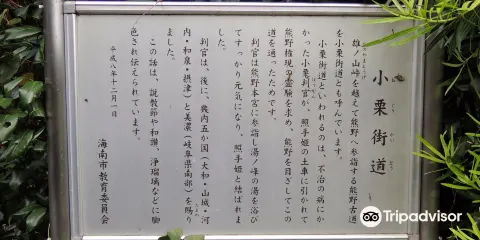 小栗街道
おぐりかいどう
雄ノ山峠を越えて熊野へ参詣する熊野古道
を小栗街道とも呼んでいます。
小栗街道といわれるのは、不治の病にか
かった小栗判官が、照手姫の土車に引かれて
熊野権現の霊験を求め、熊野を目ざしてこの
道を通ったためです。
判官は熊野本宮に参詣し湯ノ峰の湯を浴び
てすっかり元気になり、照手姫と結ばれま
した。
判官は、後に、畿内五か国(大和・山城・河
内・和泉・摂津)と美濃(岐阜県南部)を賜り
ました。
この話は、説教節や和讃、浄瑠璃などに脚
色され伝えられています。
平成八年十二月一日
海南市教育委員会
Tripadvisor